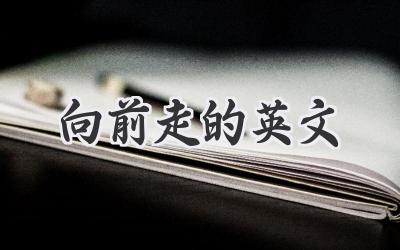 向前走的英文